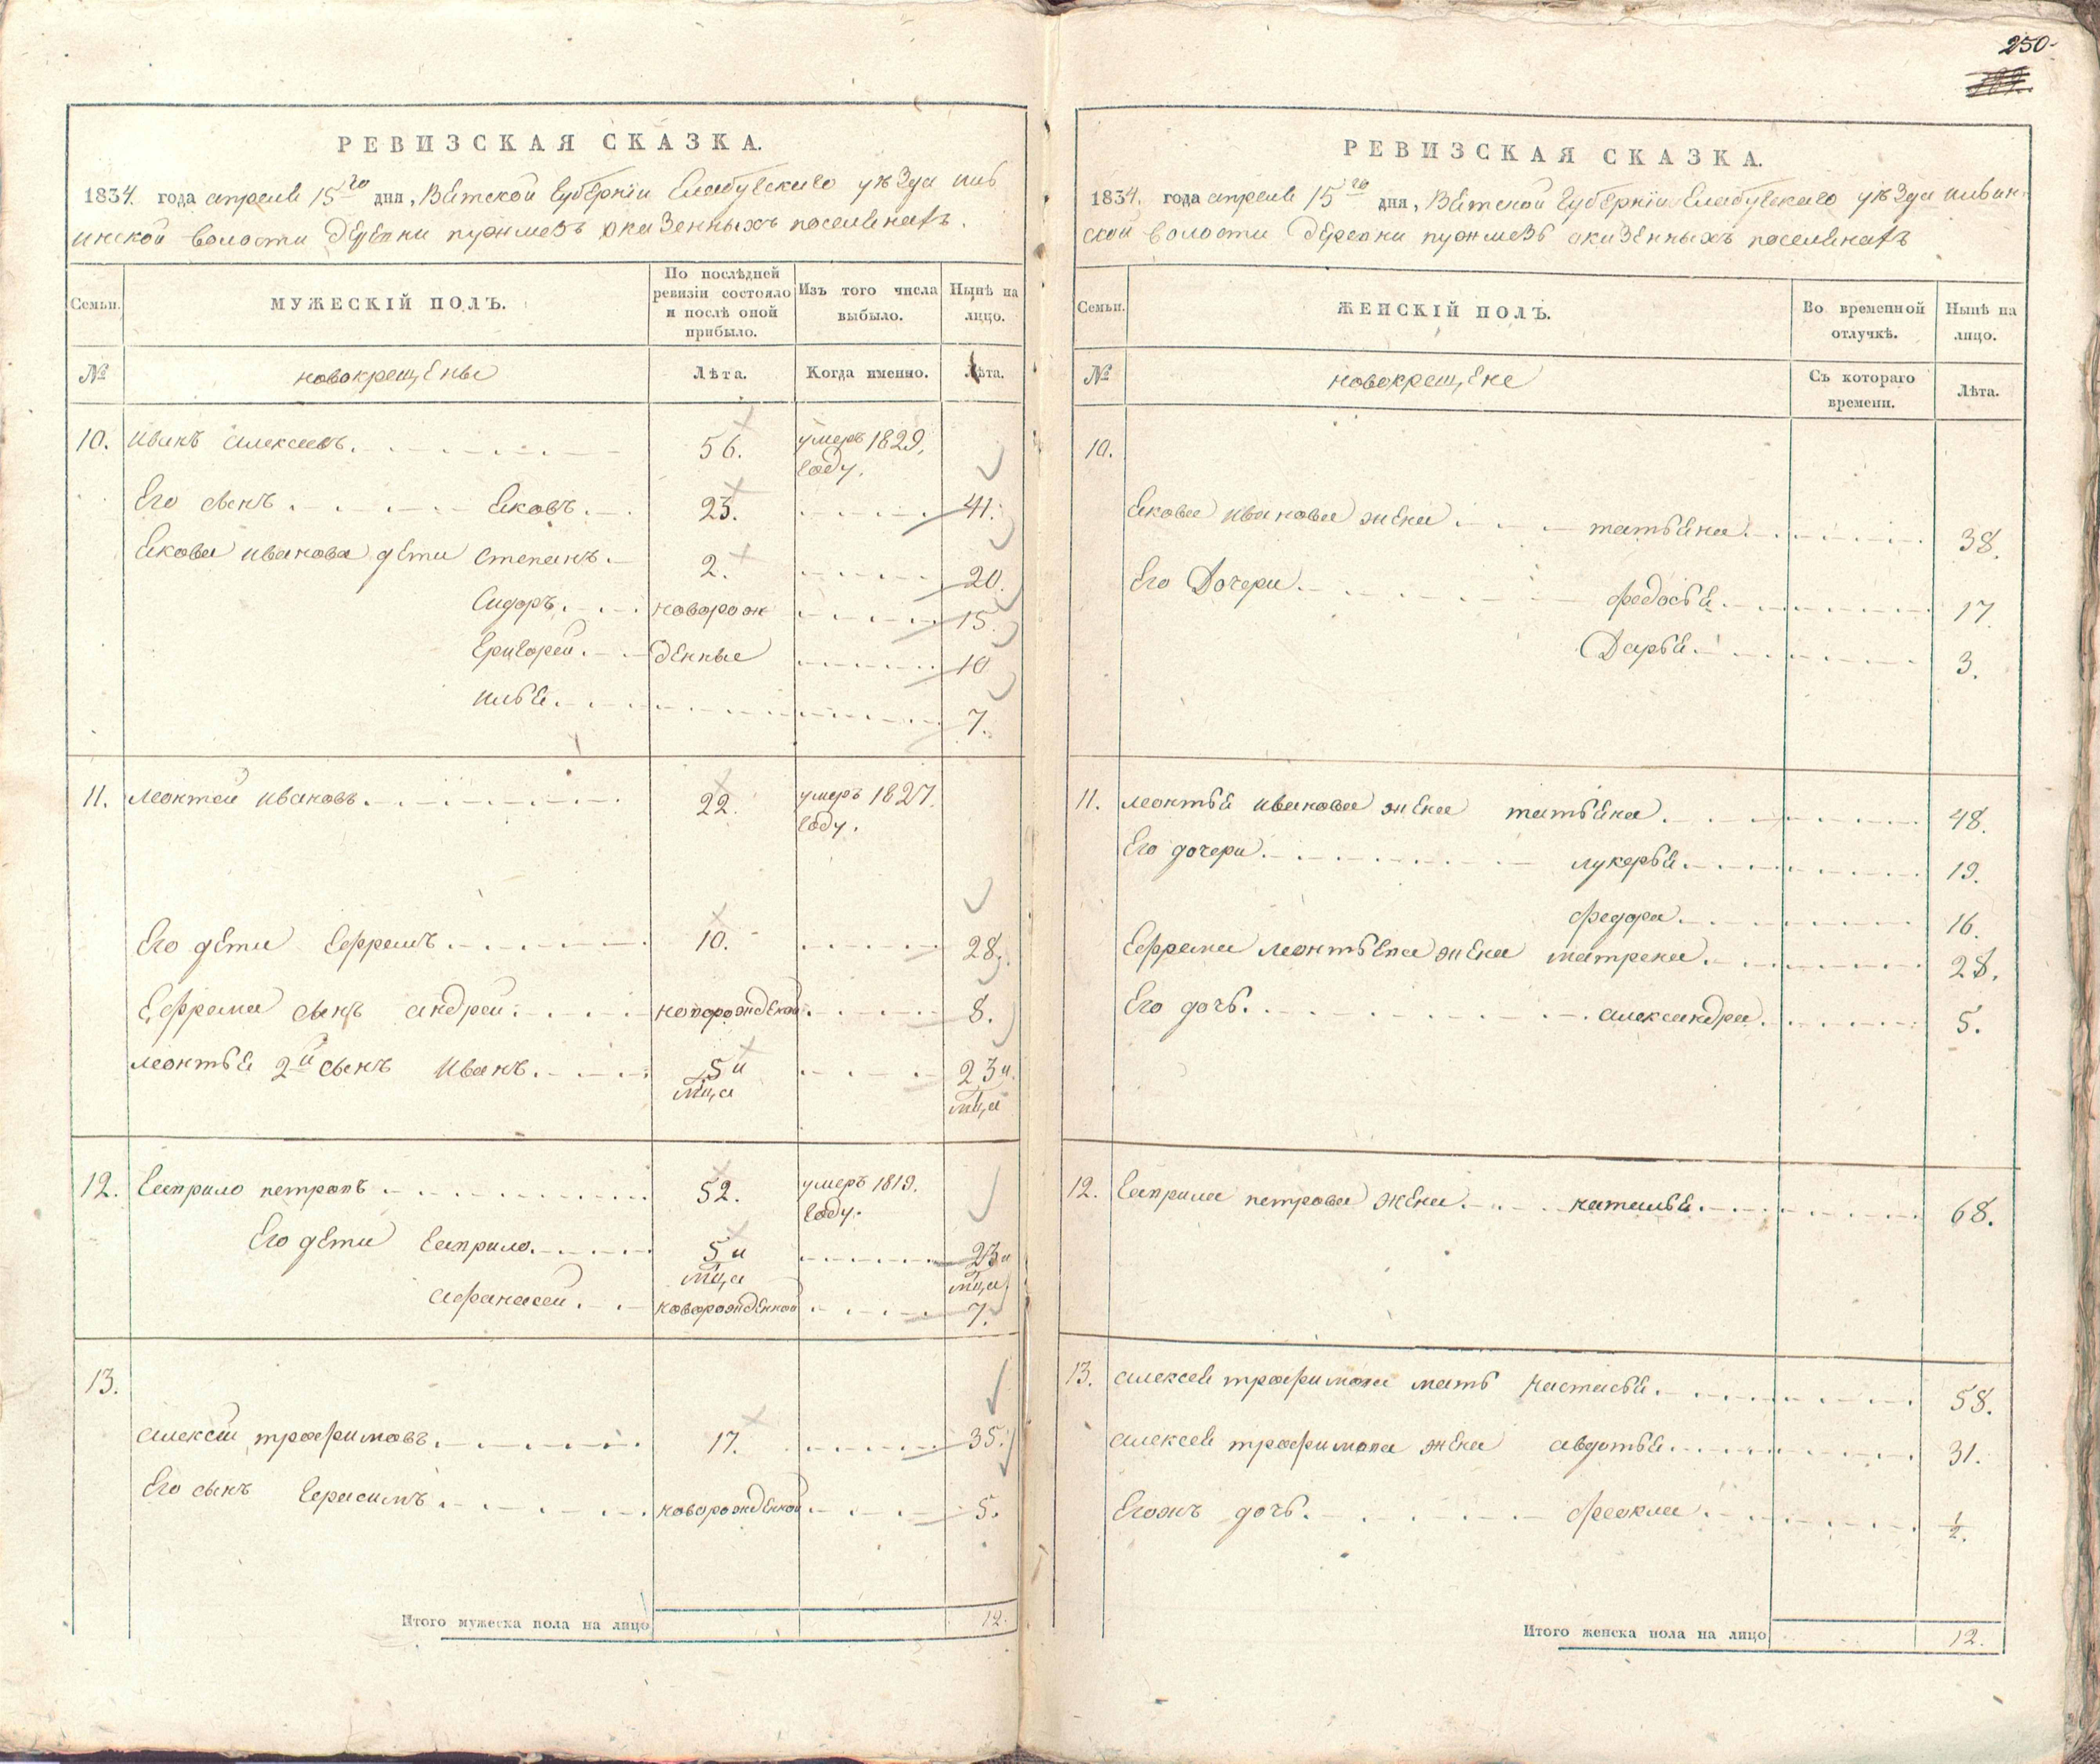 250.
РЕВИЗСКАЯ СКАЗКА.
1834. года апреля 15го дня, Вятской Губерніи Елабугскаго уѣзда иль
инской волости деревни пужмезь оказенныхъ поселянахъ.
Семьи.
МУЖЕСКІЙ ПОЛЪ.
По послѣдней ревизіи состояло и послѣ оной прибыло.
Изъ того числа выбыло.
Нынѣ на лицо.
№
новокрещены
Лѣта.
Когда именно.
Лѣта.
10. иванъ алексеевъ. 56. умеръ 1829.
году.
Его сынъ Яковъ. 23. 41.
Якова иванова дети степанъ. 2. 20.
Сидоръ. новорож 15.
Григорей. денные 10
илья. 7.
11. леонтей ивановъ. 22. умеръ 1827.
году.
Его дети Ефремъ. 10. 28.
Ефрема сынъ андрей. новорожденой 8.
леонтья 2й сынъ иванъ. 5 и 23 и
мца мца
12. Гаврило петровъ 52. умеръ 1819.
году.
Его дети Гаврило. 5 и 23 и
мца мца
афанасей. новорожденной 7.
13.
алексей трофимовъ. 17. 35.
Его сынъ Герасимъ. новорожденной 5.
Итого мужеска пола на лицо 12.
РЕВИЗСКАЯ СКАЗКА.
1834. года апреля 15го дня, Вятской Губерніи Елабугскаго уѣзда ильин
ской волости деревни пужмезь оказенныхъ поселянахъ
Семьи.
ЖЕНСКІЙ ПОЛЪ.
Во временной отлучкѣ.
Нынѣ на лицо.
№
новокрещене
Съ котораго времени.
Лѣта.
10.
Якова иванова жена татьяна. 38.
Его Дочери. федосья. 17.
Дарья. 3.
11. леонтья иванова жена татьяна. 48.
Его дочери. лукерья. 19.
федора. 16.
Ефрема леонтьева жена матрена. 28.
Его дочь. александра. 5.
12. Гаврила петрова жена. наталья. 68.
13. алексея трофимова мать настасья. 58.
алексея трофимова жена авдотья. 31.
Егожъ дочь. фекла. 1/2.
Итого женска пола на лицо 12.